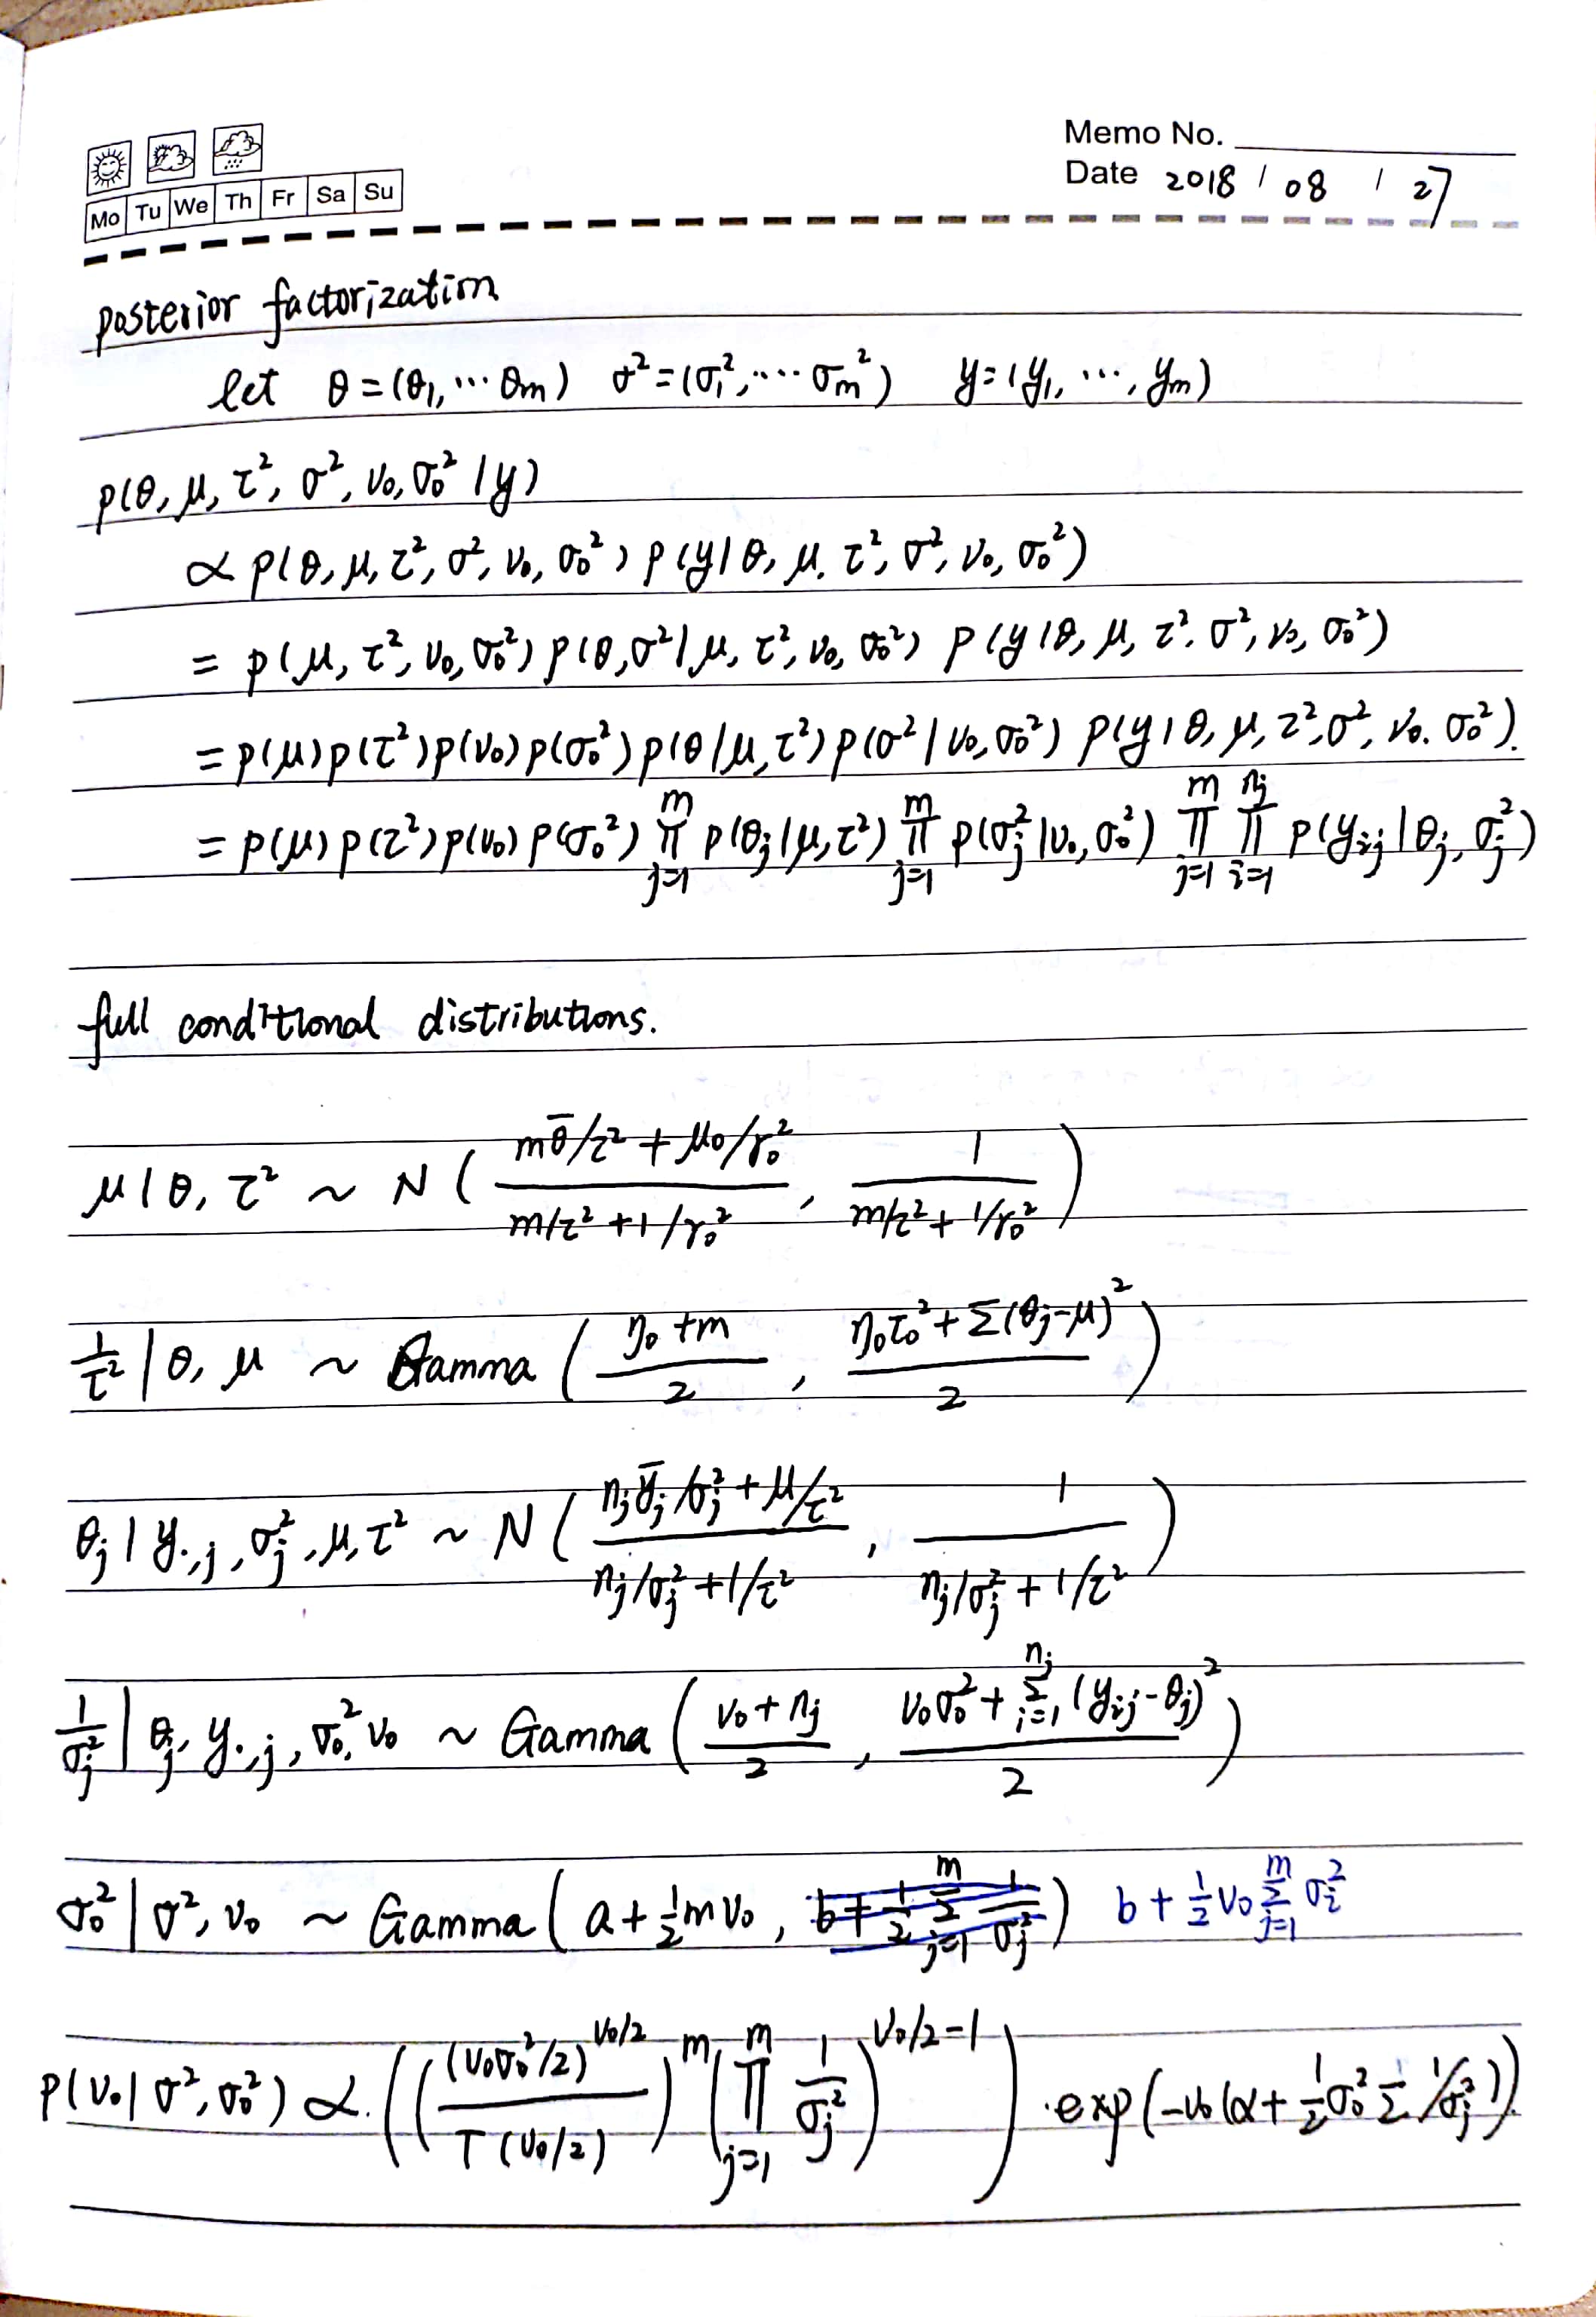 Memo No.
Mo Tu We Th Fr Sa Su
Date 2018 / 08 / 27
posterior factorization
let θ = (θ₁, ⋯ θm) σ² = (σ₁², ⋯ σm²) y = (y₁, ⋯, ym)
p(θ, μ, τ², σ², ν₀, σ₀² | y)
∝ p(θ, μ, τ², σ², ν₀, σ₀²) p(y | θ, μ, τ², σ², ν₀, σ₀²)
= p(μ, τ², ν₀, σ₀²) p(θ, σ² | μ, τ², ν₀, σ₀²) p(y | θ, μ, τ², σ², ν₀, σ₀²)
= p(μ) p(τ²) p(ν₀) p(σ₀²) p(θ | μ, τ²) p(σ² | ν₀, σ₀²) p(y | θ, μ, τ², σ², ν₀, σ₀²).
= p(μ) p(τ²) p(ν₀) p(σ₀²) ∏_{j=1}^{m} p(θj | μ, τ²) ∏_{j=1}^{m} p(σj² | ν₀, σ₀²) ∏_{j=1}^{m} ∏_{i=1}^{nj} p(yij | θj, σj²)
full conditional distributions.
μ | θ, τ² ~ N ( (mθ̄/τ² + μ₀/γ₀²) / (m/τ² + 1/γ₀²), 1 / (m/τ² + 1/γ₀²) )
1/τ² | θ, μ ~ Gamma ( (η₀ + m) / 2, (η₀τ₀² + Σ(θj − μ)²) / 2 )
θj | y.,j, σj², μ, τ² ~ N ( (njȳj/σj² + μ/τ²) / (nj/σj² + 1/τ²), 1 / (nj/σj² + 1/τ²) )
1/σj² | θj, y.,j, σ₀², ν₀ ~ Gamma ( (ν₀ + nj) / 2, (ν₀σ₀² + Σ_{i=1}^{nj} (yij − θj)²) / 2 )
σ₀² | σ², ν₀ ~ Gamma ( a + ½mν₀, b + ½ Σ_{j=1}^{m} 1/σj² ) b + ½ν₀ Σ_{j=1}^{m} σi²
p(ν₀ | σ², σ₀²) ∝. ( ( (ν₀σ₀²/2)^{ν₀/2} / Γ(ν₀/2) )^m ( ∏_{j=1}^{m} 1/σj² )^{ν₀/2−1} ) · exp(−ν₀(α + ½σ₀² Σ 1/σj²)).